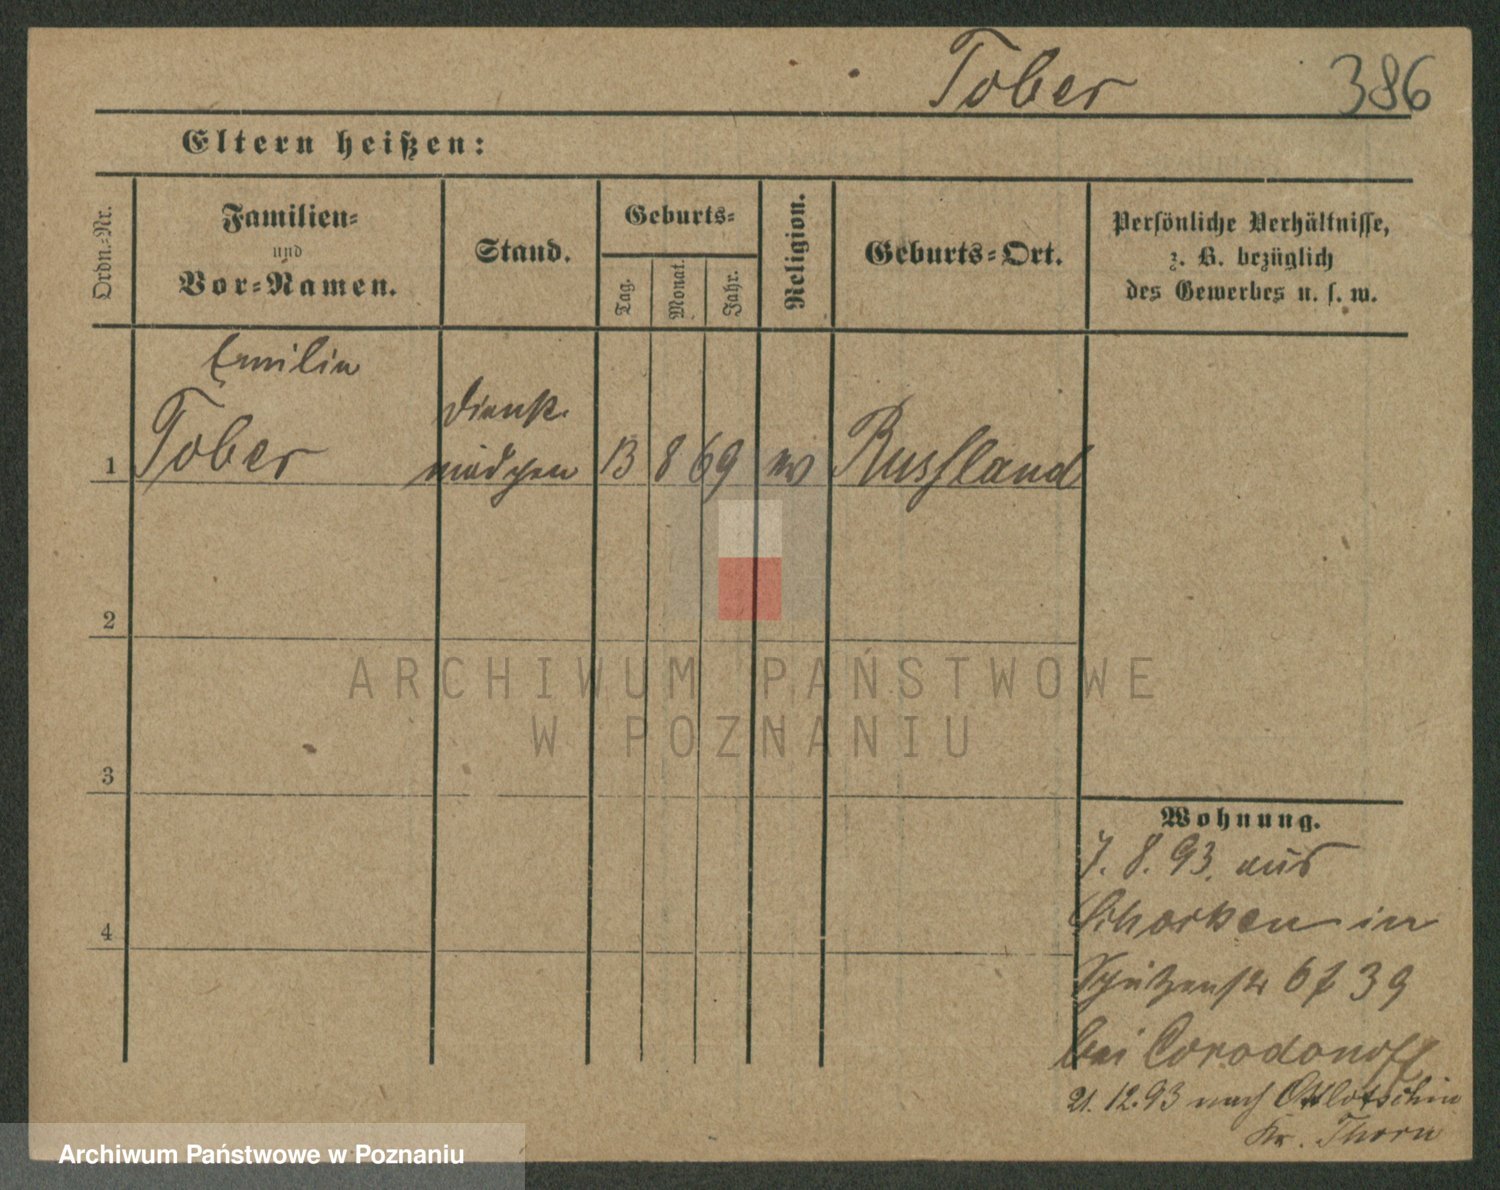 Tober 386
Eltern heißen:
Ordn.-Nr.
Familien-
und
Vor-Namen.
Stand.
Geburts-
Tag.
Monat.
Jahr.
Religion.
Geburts-Ort.
Persönliche Verhältnisse,
z. B. bezüglich
des Gewerbes u. s. w.
Emilie
Dienst-
1 Tober mädchen 13 8 69 ev Russland
2
3
4
Wohnung.
7. 8. 93. aus
in
Schützenstr 6 39
bei
21. 12. 93 nach Ottlotschin
Kr. Thorn
ARCHIWUM PAŃSTWOWE
W POZNANIU
Archiwum Państwowe w Poznaniu